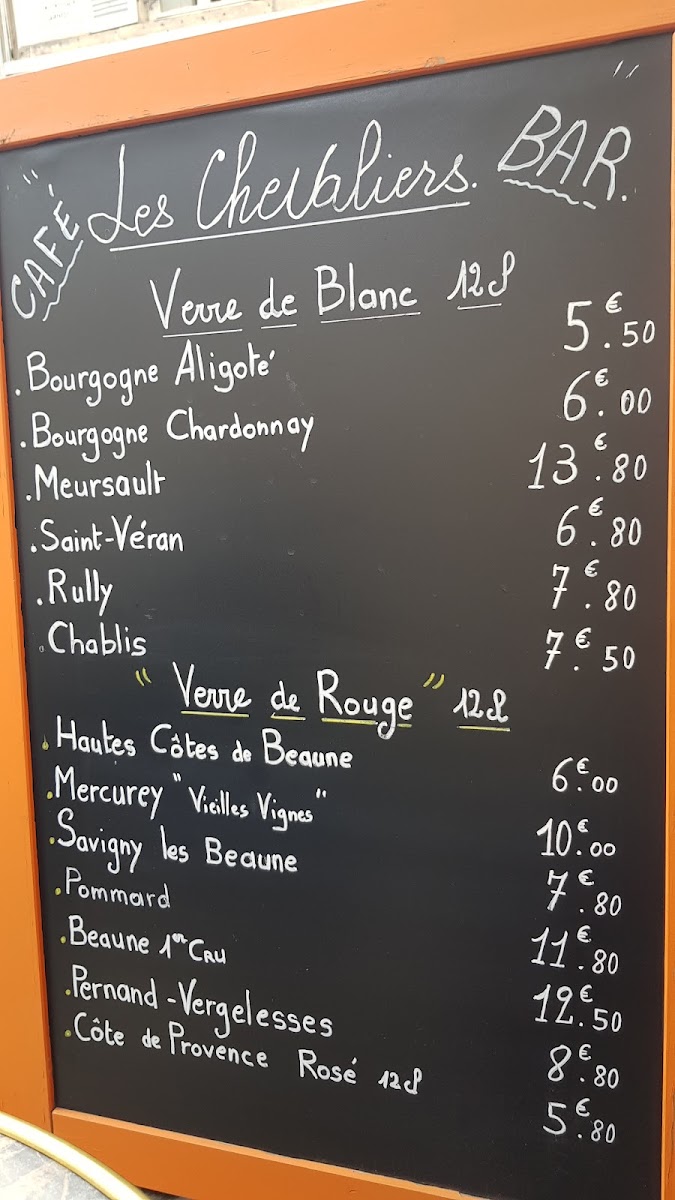 "CAFÉ Les Chevaliers. BAR."
Verre de Blanc 12cl
. Bourgogne Aligoté 5€.50
. Bourgogne Chardonnay 6€.00
. Meursault 13€.80
. Saint-Véran 6€.80
. Rully 7€.80
. Chablis 7€.50
"Verre de Rouge" 12cl
. Hautes Côtes de Beaune 6€.00
. Mercurey "Vieilles Vignes" 10€.00
. Savigny les Beaune 7€.80
. Pommard 11€.80
. Beaune 1er Cru 12€.50
. Pernand-Vergelesses 8€.80
. Côte de Provence Rosé 12cl 5€.80